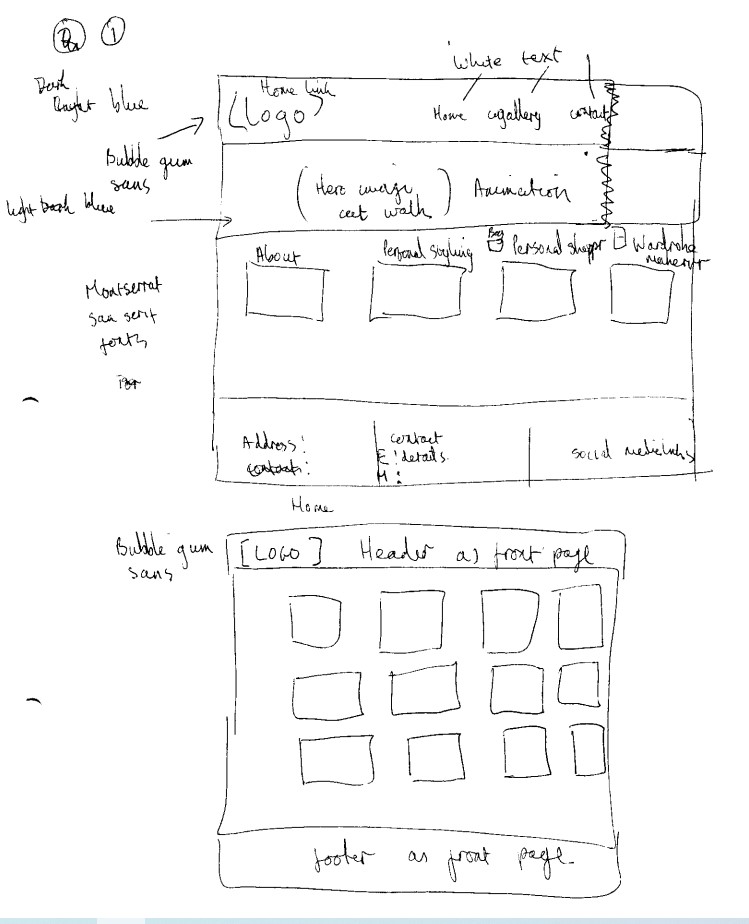 1
White text
Dark
bright blue
Home link
Logo
Home gallery contact
Bubble gum
sans
Hero image
cat walk
Animation
light dark blue
About
Personal styling
Bag
Personal shoppr
Wardrobe
makeover
Montserrat
san serif
fonts
Address:
contact
E: details
M:
social media links
Home
Bubble gum
sans
[LOGO] Header as front page
footer as front page.